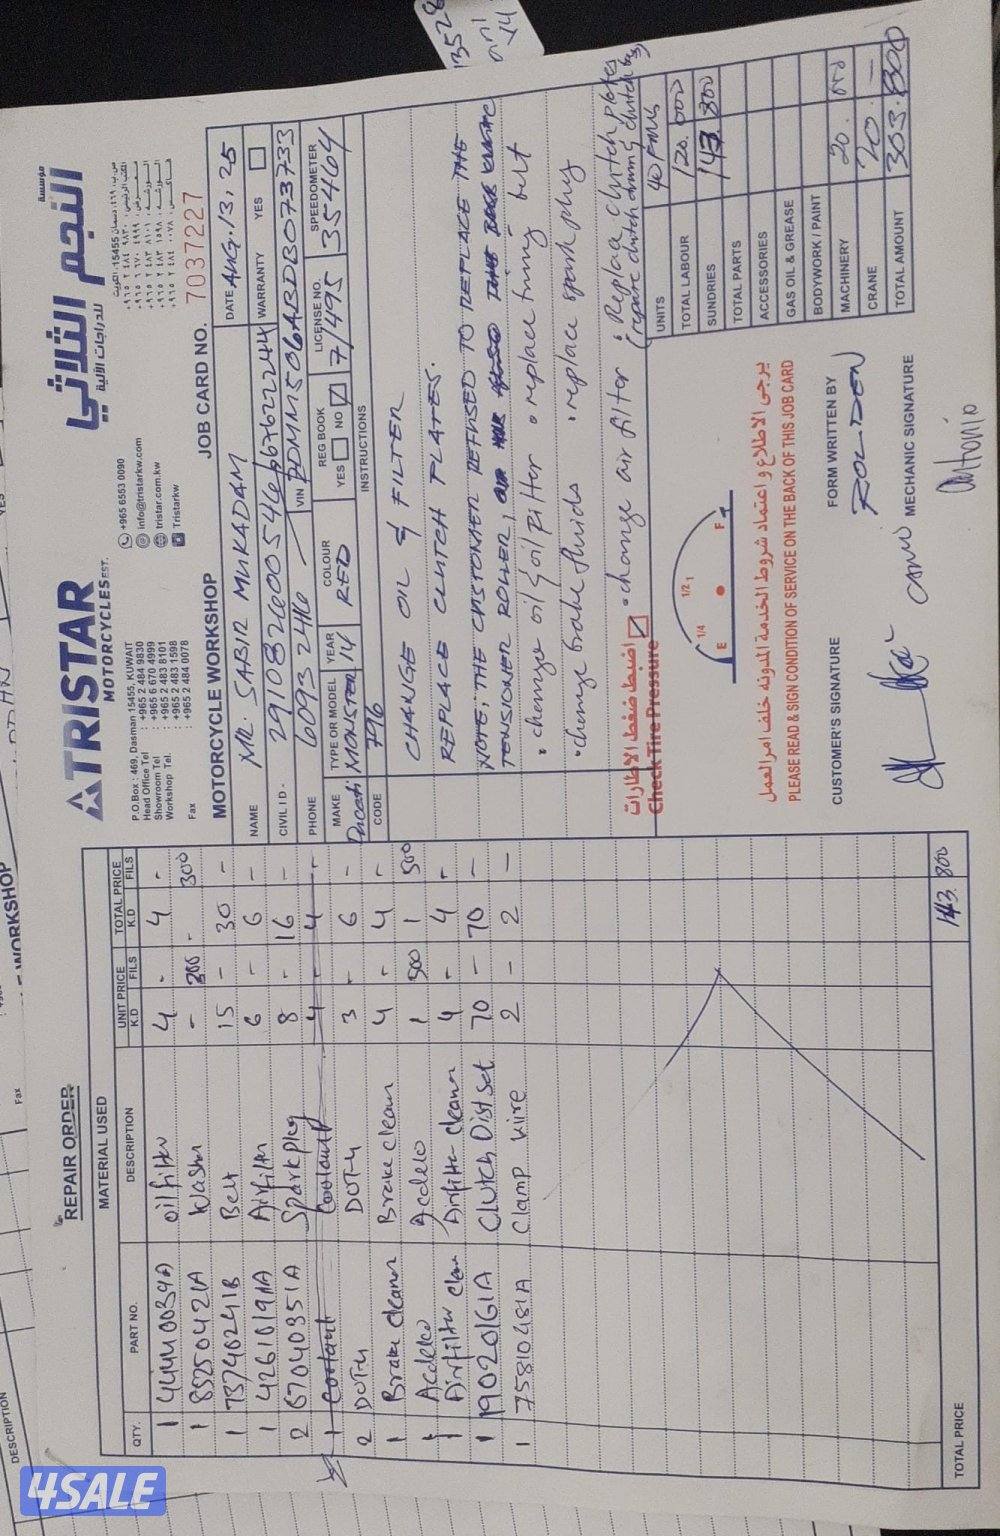 TRISTAR
MOTORCYCLES EST.
مؤسسة
النجم الثلاثي
للدراجات الآلية
P.O.Box : 469, Dasman 15455, KUWAIT
Head Office Tel : +965 2 484 9830
Showroom Tel : +965 6 670 4999
Workshop Tel. : +965 2 483 8101
: +965 2 483 1598
Fax : +965 2 484 0078
+965 6553 0090
info@tristarkw.com
tristar.com.kw
Tristarkw
MOTORCYCLE WORKSHOP
JOB CARD NO. 7037227
NAME MR. SABIR MUKADAM
DATE AUG. 13, 25
CIVIL ID-
WARRANTY YES
PHONE 60932416
VIN
MAKE Ducati
TYPE OR MODEL MONSTER
YEAR 14
COLOUR RED
REG BOOK YES NO
LICENSE NO. 7/1495
SPEEDOMETER 35464
CODE 796
INSTRUCTIONS
CHANGE OIL & FILTER
REPLACE CLUTCH PLATES.
NOTE; THE CUSTOMER REFUSED TO REPLACE THE
TENSIONER ROLLER,
• change oil & oil filter • replace timing belt
• change brake fluids • replace spark plug
• change air filter • Replace clutch plates
اضبط ضغط الاطارات
Check Tire Pressure
UNITS
TOTAL LABOUR 120. 000
SUNDRIES 143 800
TOTAL PARTS
ACCESSORIES
GAS OIL & GREASE
BODYWORK / PAINT
MACHINERY 20. 000
CRANE 20. -
TOTAL AMOUNT 303. 800
E 1/4 1/2 F
يرجى الاطلاع و اعتماد شروط الخدمة المدونه خلف امر العمل
PLEASE READ & SIGN CONDITION OF SERVICE ON THE BACK OF THIS JOB CARD
CUSTOMER'S SIGNATURE
FORM WRITTEN BY
ROLDEN
MECHANIC SIGNATURE
antonio
REPAIR ORDER
MATERIAL USED
QTY. PART NO. DESCRIPTION UNIT PRICE TOTAL PRICE
K.D FILS K.D FILS
1 44440034A oilfilter 4 - 4 -
1 85250421A Washer - 300 - 300
1 73740241B Belt 15 - 30 -
1 42610191A Airfilter 6 - 6 -
2 67040351A Sparkplug 8 - 16 -
1 Coolant Coolant 4 - 4 -
2 DOT4 DOT4 3 - 6 -
1 Brake cleaner Brake cleaner 4 - 4 -
1 Acdelco Acdelco 1 500 1 500
1 Airfilter clean Airfilter cleaner 4 - 4 -
1 19020161A Clutch Dist set 70 - 70 -
1 75810481A Clamp wire 2 - 2 -
TOTAL PRICE 143 800
4SALE